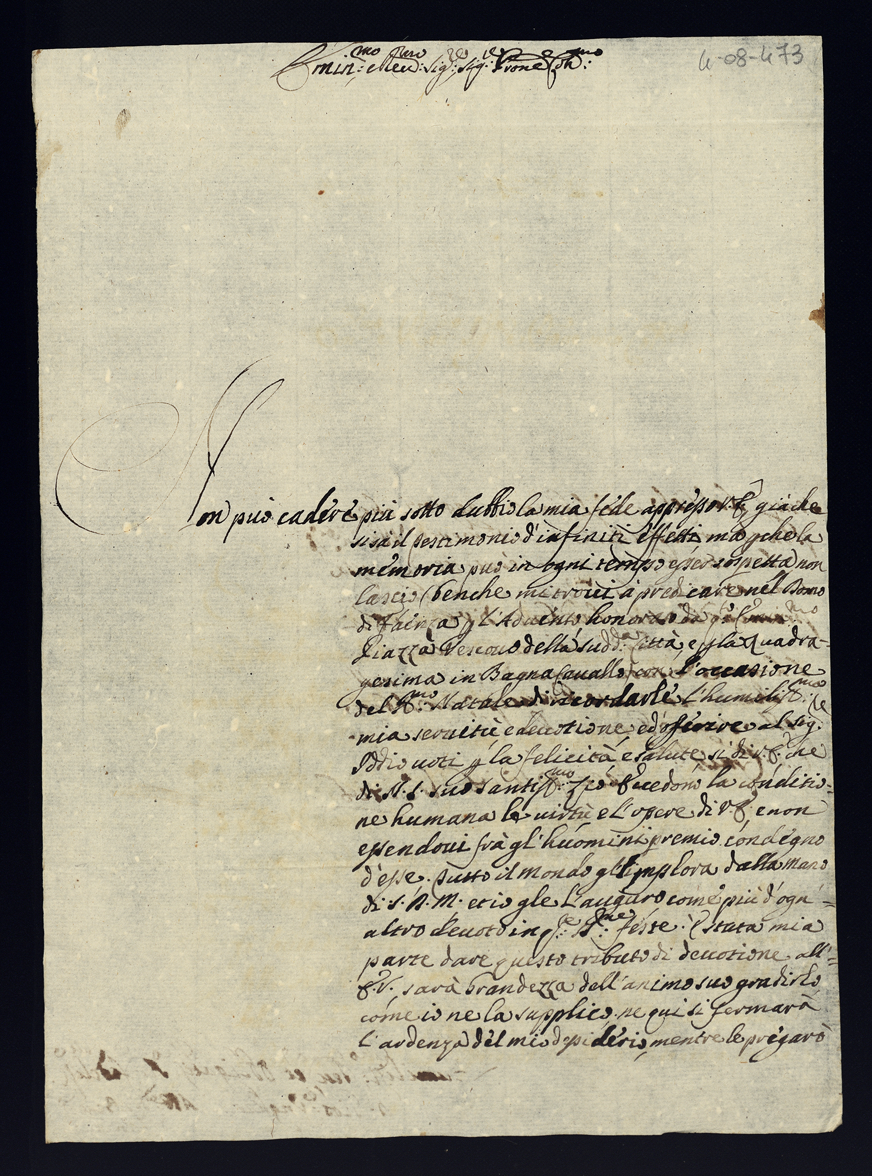 Emin.mo e Reu.mo Sig.re Sig.re Prone Col.mo
4-08-473
Non può cadere più sotto dubbio la mia fede appresso V.E. già che
si sà il testimonio d'infiniti effetti, mà perche la
memoria può in ogni tempo esser sospetta, non
lascio (benche mi troui à predicare nel Domo
di Faenza p l'Aduento honorato da
Piazza Vescouo della sudd.a Città, e p la Quadra-
gesima in Bagna Cauallo) con l'occasione
del S.mo Natale di ricordarle l'humiliss.ma
mia seruitù e deuotione, ed offerire al Sig.re
Iddio uoti p la felicità e salute si di V.E. che
di N.S. suo Santiss.mo Zio. Eccedono la conditio-
ne humana le virtù e l'opere di V.E. e non
essendoui frà gl'huomini premio condegno
d'esse. Tutto il mondo gl'implora dalla mano
di S.D.M. et io gle l'auguro come più d'ogn'
altro deuoto in q.te S.me feste. È stata mia
parte dare questo tributo di deuotione all'
E.V. sarà Grandezza dell'animo suo gradirlo
come io ne la supplico. ne qui si fermarà
l'ardenza del mio desiderio, mentre le pregarò